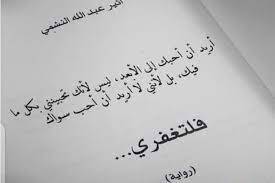 أثير عبد الله النشمي
أريد أن أحبك إلى الأبعد، ليس لأنك تحبينني بكل ما
فيك، بل لأنني لا أريد أن أحب سواك
فلتغفري...
(رواية)